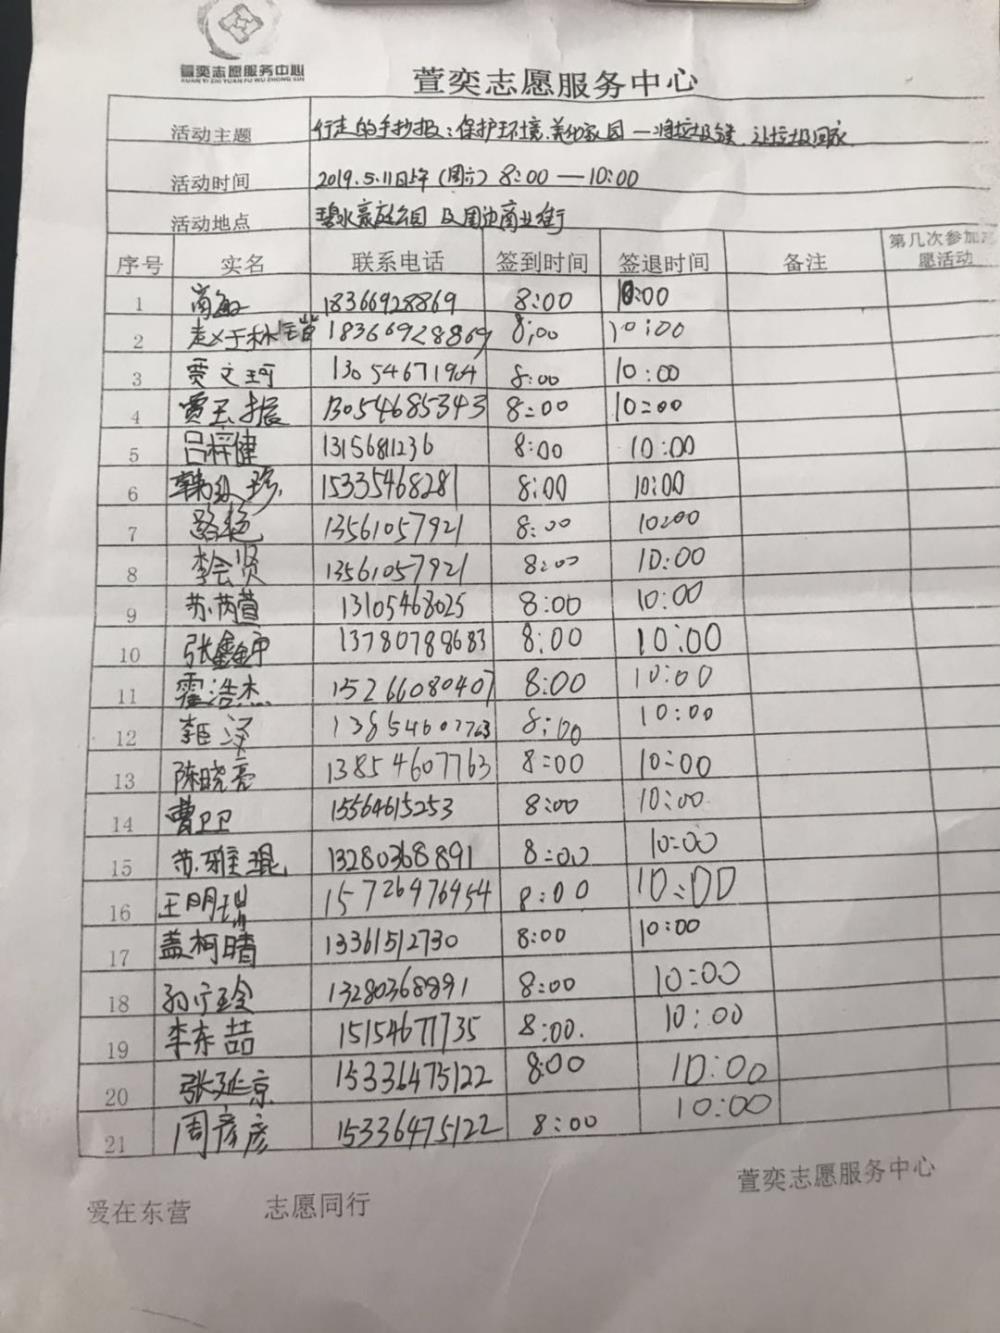 萱奕志愿服务中心
XUAN YI ZHI YUAN FU WU ZHONG XIN
萱奕志愿服务中心
活动主题 行走的手抄报：保护环境.美化家园 一 让垃圾回家
活动时间 2019.5.11日上午（周六）8:00 — 10:00
活动地点 碧水豪庭公园 及周边商业街
序号 实名 联系电话 签到时间 签退时间 备注 第几次参加志愿活动
1 18366928869 8:00 10:00
2 18366928869 8:00 10:00
3 贾文珂 13054671964 8:00 10:00
4 贾玉振 13054685343 8:00 10:00
5 吕梓健 13156811236 8:00 10:00
6 韩 珍 15335468281 8:00 10:00
7 路艳 13561057921 8:00 10:00
8 李会贤 13561057921 8:00 10:00
9 苏芮萱 13105468025 8:00 10:00
10 张鑫 13780788683 8:00 10:00
11 霍浩杰 15266080407 8:00 10:00
12 13854607763 8:00 10:00
13 陈晓亮 13854607763 8:00 10:00
14 曹卫卫 15564615253 8:00 10:00
15 苏雅琨 13280368891 8:00 10:00
16 王明瑞 15726976954 8:00 10:00
17 盖柯晴 13361512730 8:00 10:00
18 孙宁玲 13280368891 8:00 10:00
19 李东喆 15154677735 8:00. 10:00
20 张延京 15336475122 8:00 10:00
21 周彦彦 15336475122 8:00 10:00
萱奕志愿服务中心
爱在东营 志愿同行